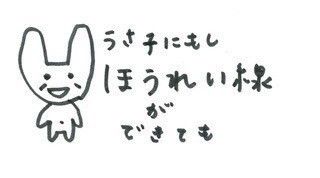 うさ子にもし
ほうれい線
が
できても